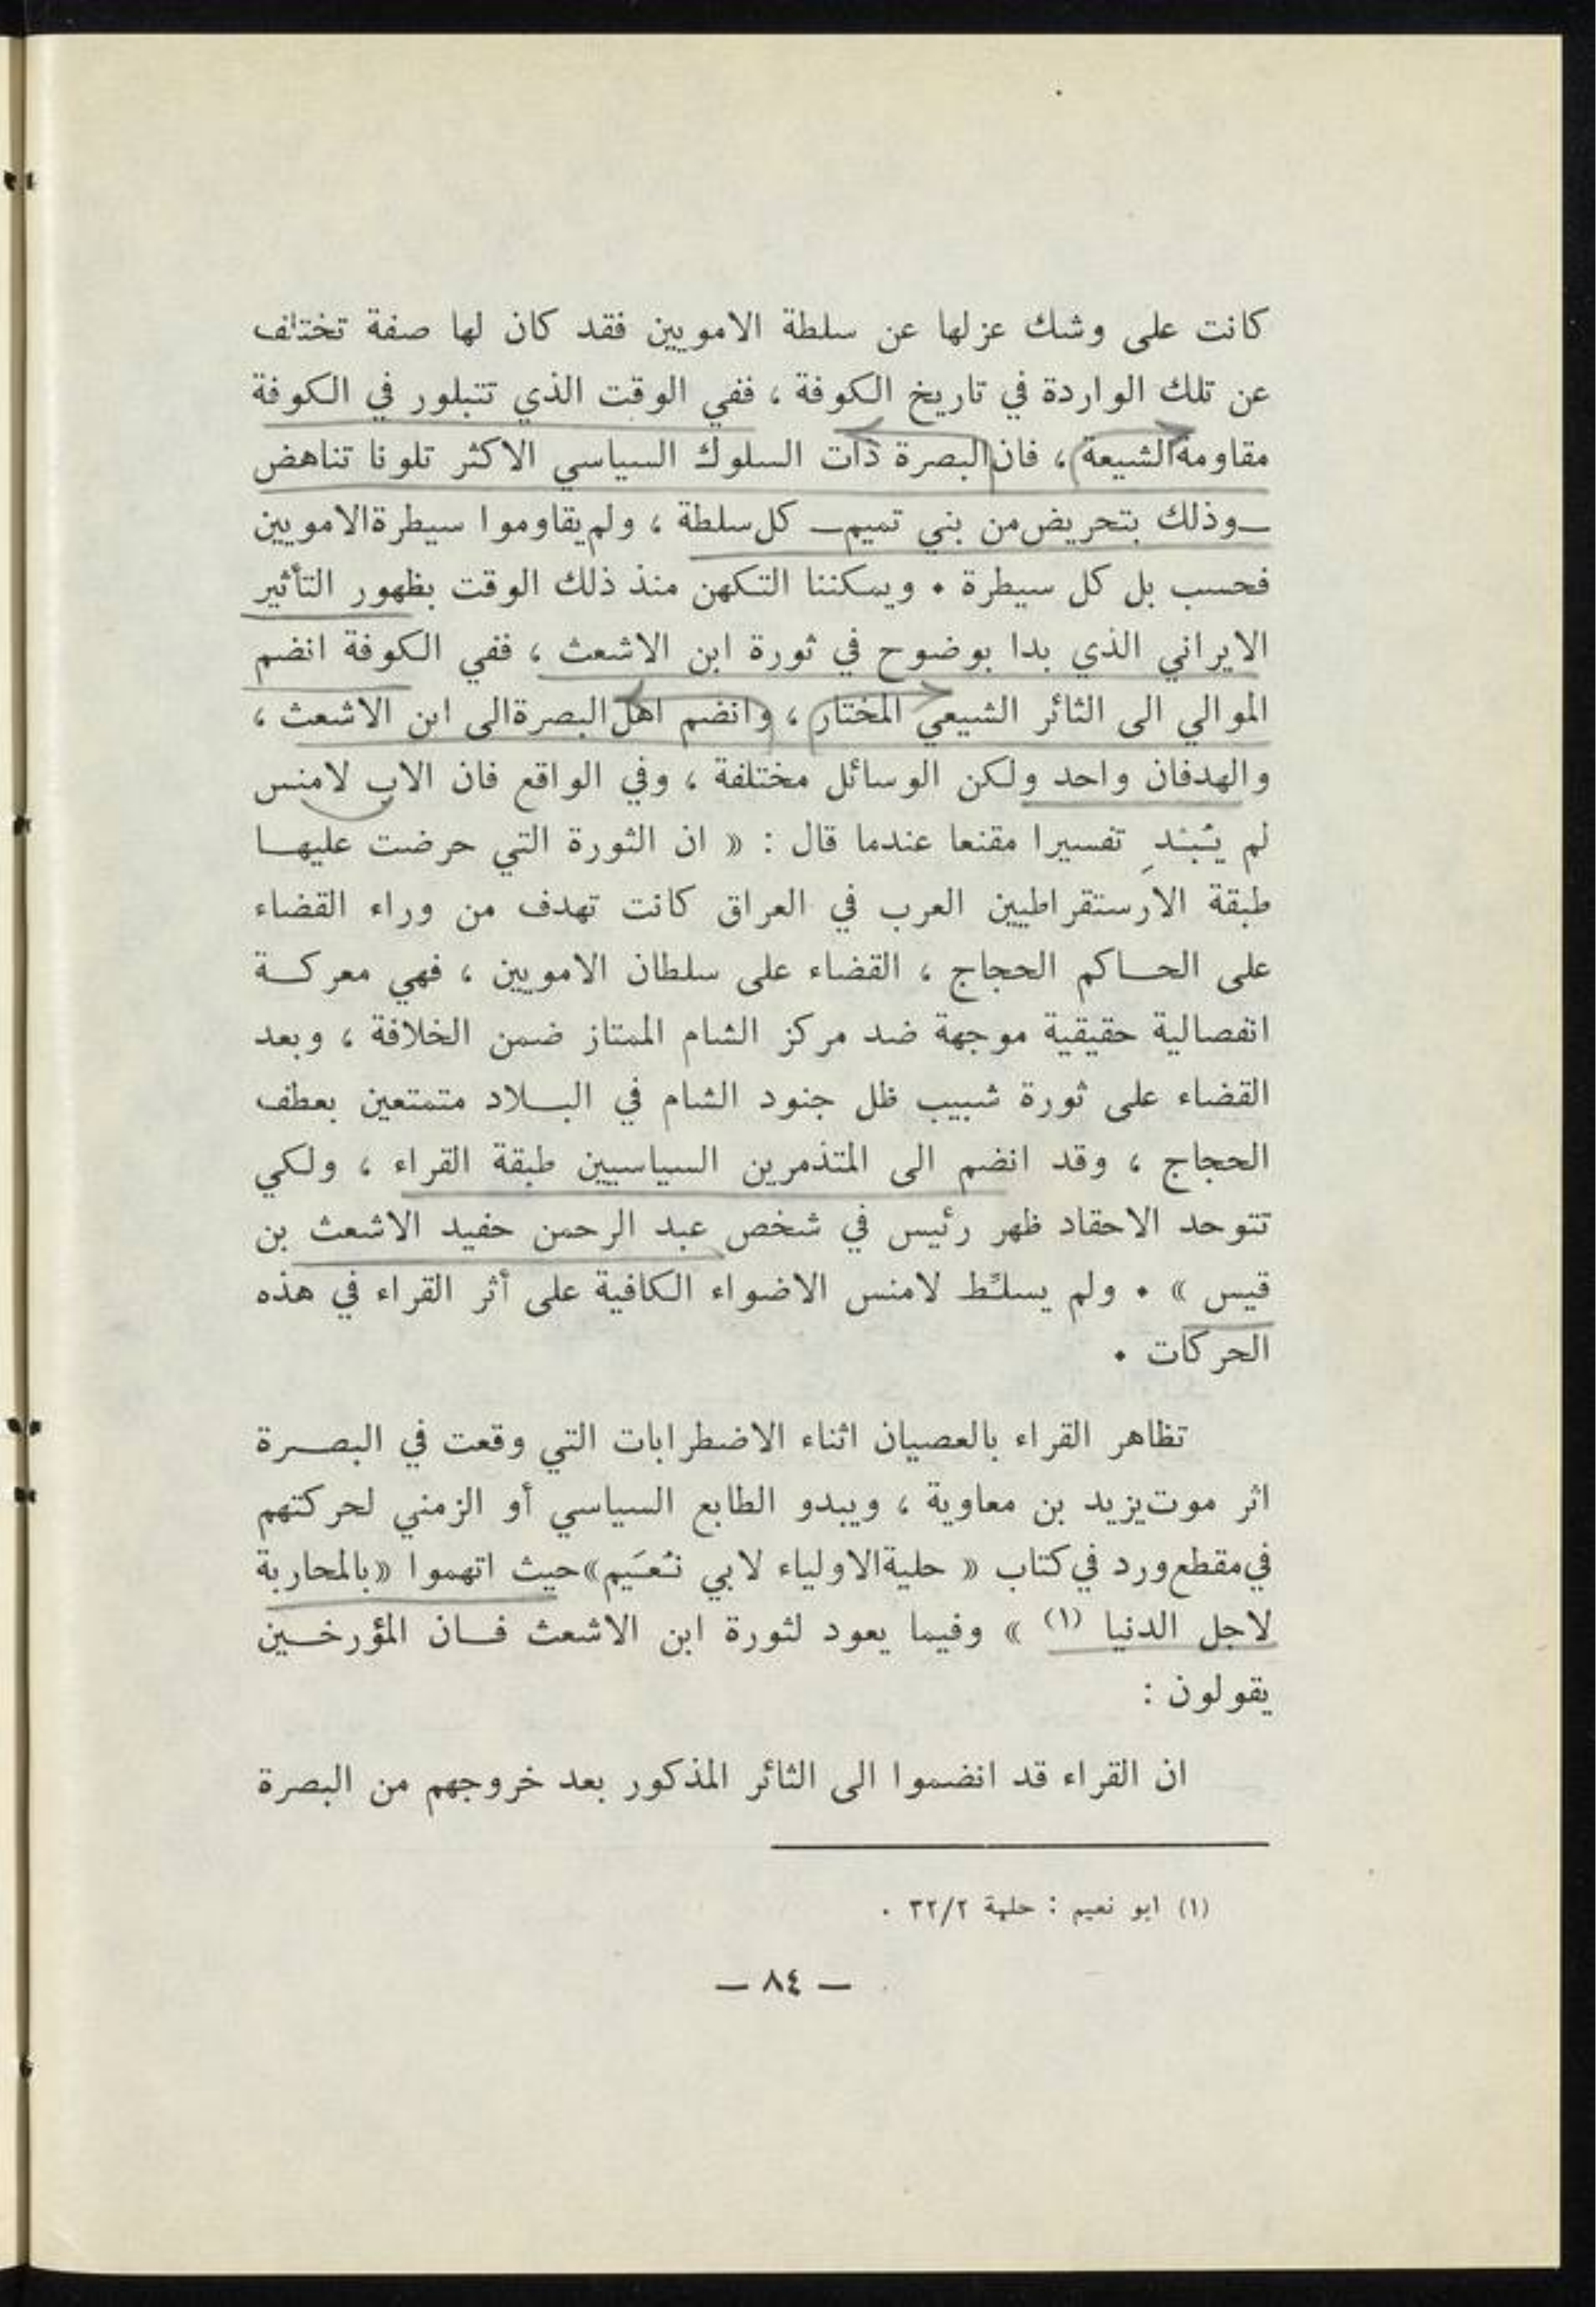 كانت على وشك عزلها عن سلطة الامويين فقد كان لها صفة تختلف
عن تلك الواردة في تاريخ الكوفة ، ففي الوقت الذي تتبلور في الكوفة
مقاومة الشيعة ، فان البصرة ذات السلوك السياسي الاكثر تلونا تناهض
ــ وذلك بتحريض من بني تميم ــ كل سلطة ، ولم يقاوموا سيطرة الامويين
فحسب بل كل سيطرة . ويمكننا التكهن منذ ذلك الوقت بظهور التأثير
الايراني الذي بدا بوضوح في ثورة ابن الاشعث ، ففي الكوفة انضم
الموالي الى الثائر الشيعي المختار ، وانضم اهل البصرة الى ابن الاشعث ،
والهدفان واحد ولكن الوسائل مختلفة ، وفي الواقع فان الاب لامنس
لم يُبْدِ تفسيرا مقنعا عندما قال : « ان الثورة التي حرضت عليهـا
طبقة الارستقراطيين العرب في العراق كانت تهدف من وراء القضاء
على الحـاكم الحجاج ، القضاء على سلطان الامويين ، فهي معركـة
انفصالية حقيقية موجهة ضد مركز الشام الممتاز ضمن الخلافة ، وبعد
القضاء على ثورة شبيب ظل جنود الشام في البـلاد متمتعين بعطف
الحجاج ، وقد انضم الى المتذمرين السياسيين طبقة القراء ، ولكي
تتوحد الاحقاد ظهر رئيس في شخص عبد الرحمن حفيد الاشعث بن
قيس » . ولم يسلّط لامنس الاضواء الكافية على أثر القراء في هذه
الحركات .
تظاهر القراء بالعصيان اثناء الاضطرابات التي وقعت في البصـرة
اثر موت يزيد بن معاوية ، ويبدو الطابع السياسي أو الزمني لحركتهم
في مقطع ورد في كتاب « حلية الاولياء لابي نُعَيم » حيث اتهموا « بالمحاربة
لاجل الدنيا (١) » وفيما يعود لثورة ابن الاشعث فـان المؤرخـين
يقولون :
ان القراء قد انضموا الى الثائر المذكور بعد خروجهم من البصرة
(١) ابو نعيم : حلية ٣٢/٢ .
— ٨٤ —